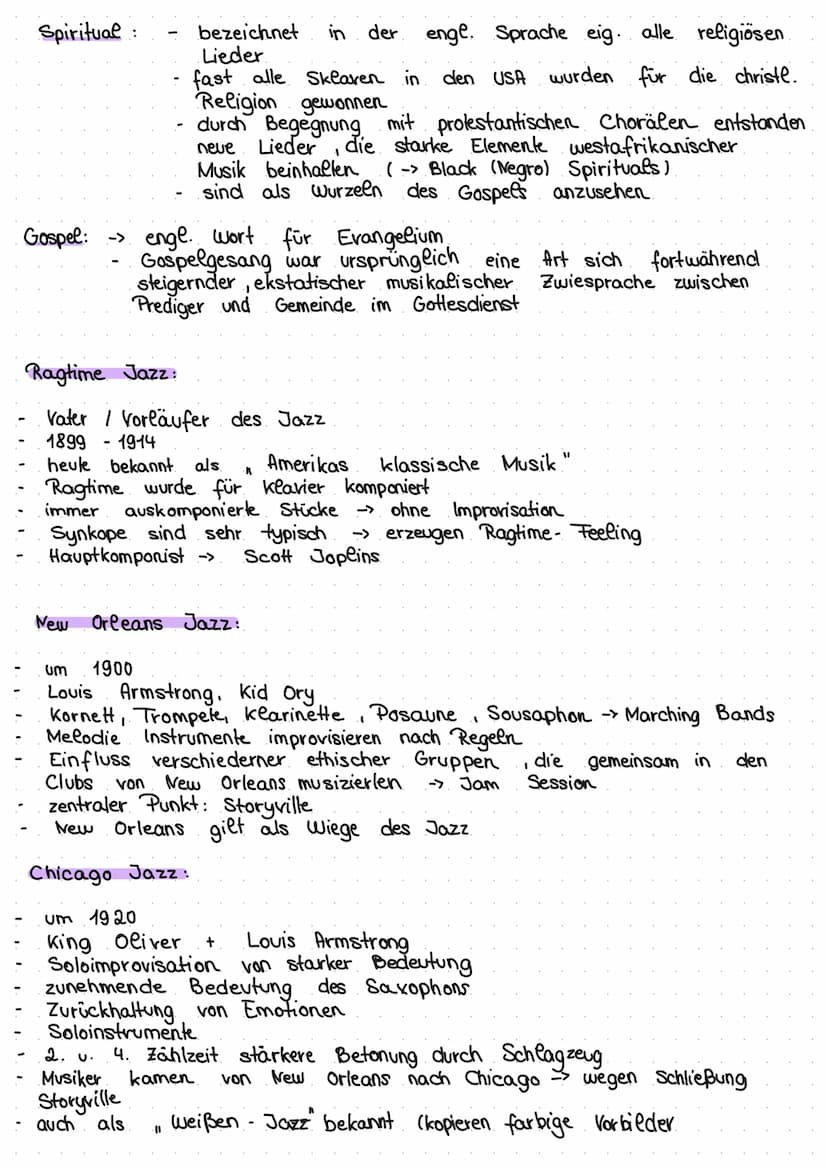 Spiritual : - bezeichnet in der engl. Sprache eig. alle religiösen
Lieder
- fast alle Sklaven in den USA wurden für die christl.
Religion gewonnen
- durch Begegnung mit protestantischen Chorälen entstanden
neue Lieder , die starke Elemente westafrikanischer
Musik beinhalten ( -> Black (Negro) Spirituals )
- sind als Wurzeln des Gospels anzusehen
Gospel: -> engl. Wort für Evangelium
- Gospelgesang war ursprünglich eine Art sich fortwährend
steigernder , ekstatischer musikalischer Zwiesprache zwischen
Prediger und Gemeinde im Gottesdienst
Ragtime Jazz:
- Vater / Vorläufer des Jazz
- 1899 - 1914
- heute bekannt als „ Amerikas klassische Musik "
- Ragtime wurde für Klavier komponiert
- immer auskomponierte Stücke -> ohne Improvisation
- Synkope sind sehr typisch -> erzeugen Ragtime- Feeling
- Hauptkomponist -> Scott Joplins
New Orleans Jazz:
- um 1900
- Louis Armstrong, Kid Ory
- Kornett, Trompete, Klarinette , Posaune , Sousaphon -> Marching Bands
- Melodie Instrumente improvisieren nach Regeln
- Einfluss verschiederner ethischer Gruppen , die gemeinsam in den
Clubs von New Orleans musizierten -> Jam Session
- zentraler Punkt: Storyville
- New Orleans gilt als Wiege des Jazz
Chicago Jazz:
- um 1920
- King Oliver + Louis Armstrong
- Soloimprovisation von starker Bedeutung
- zunehmende Bedeutung des Saxophons
- Zurückhaltung von Emotionen
- Soloinstrumente
- 2. u. 4. Zählzeit stärkere Betonung durch Schlagzeug
- Musiker kamen von New Orleans nach Chicago -> wegen Schließung
Storyville
- auch als „ Weißen - Jazz" bekannt (kopieren farbige Vorbilder